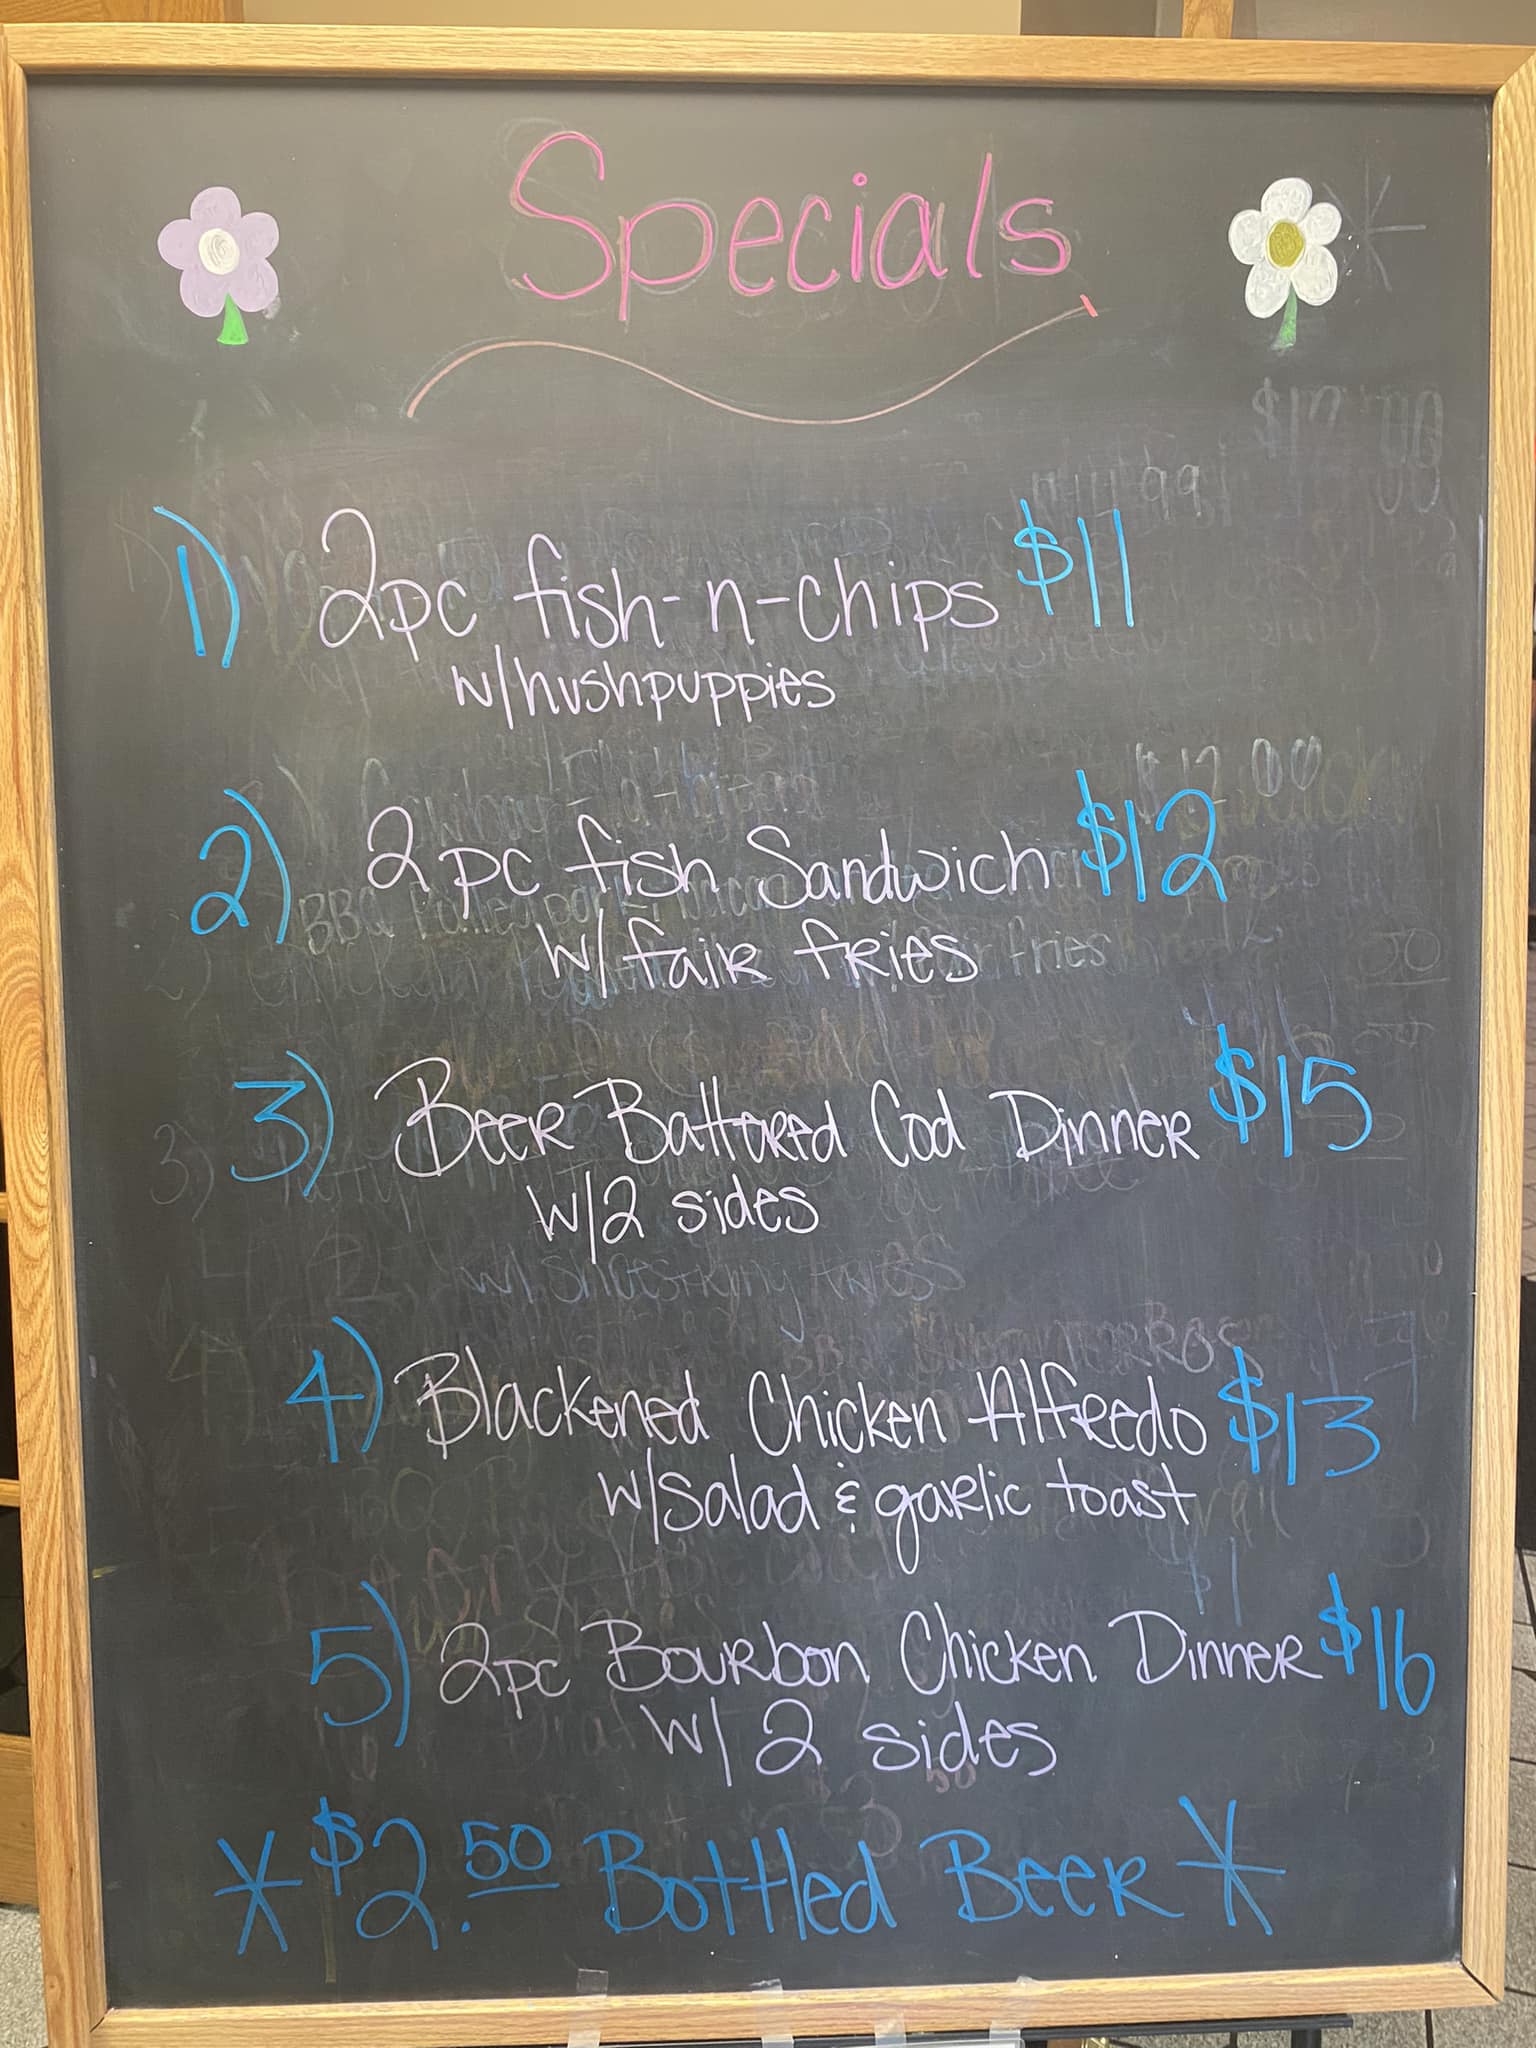 Specials
1) 2pc fish-n-chips $11
w/hushpuppies
2) 2pc fish Sandwich $12
w/ fair fries
3) Beer Battered Cod Dinner $15
w/2 sides
4) Blackened Chicken Alfredo $13
w/Salad & garlic toast
5) 2pc Bourbon Chicken Dinner $16
w/ 2 sides
* $2.50 Bottled Beer *